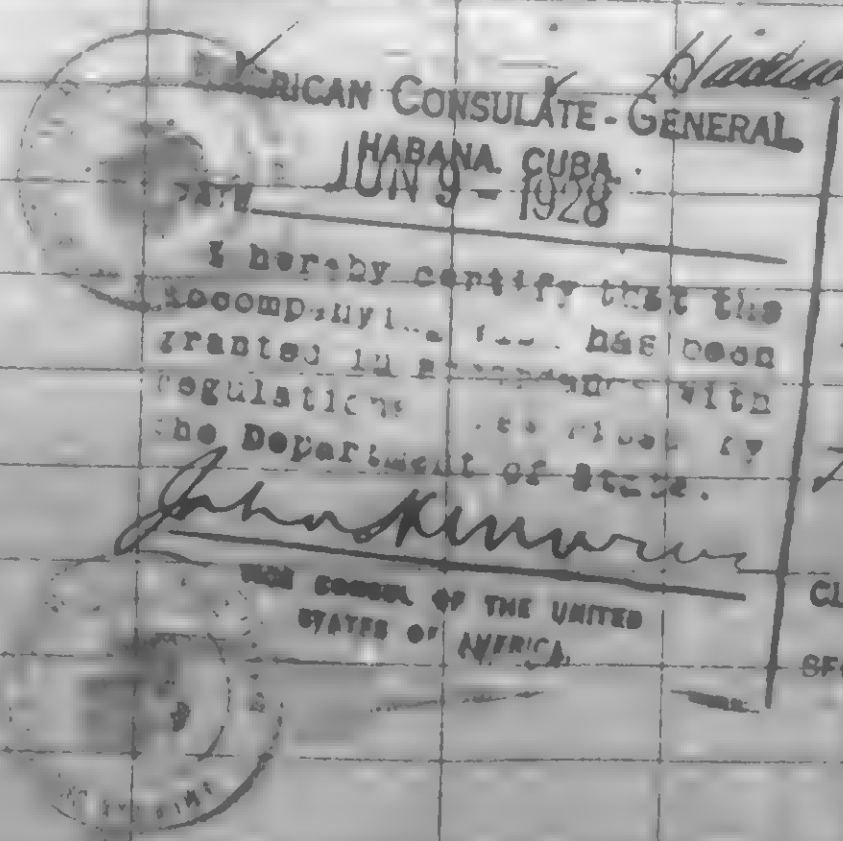 AMERICAN CONSULATE-GENERAL
HABANA. CUBA.
JUN 9 - 1928
DATE
I hereby certify that the
accompanying has been
granted in accordance with
regulations by
the Department of State.
John
VICE CONSUL OF THE UNITED
STATES OF AMERICA